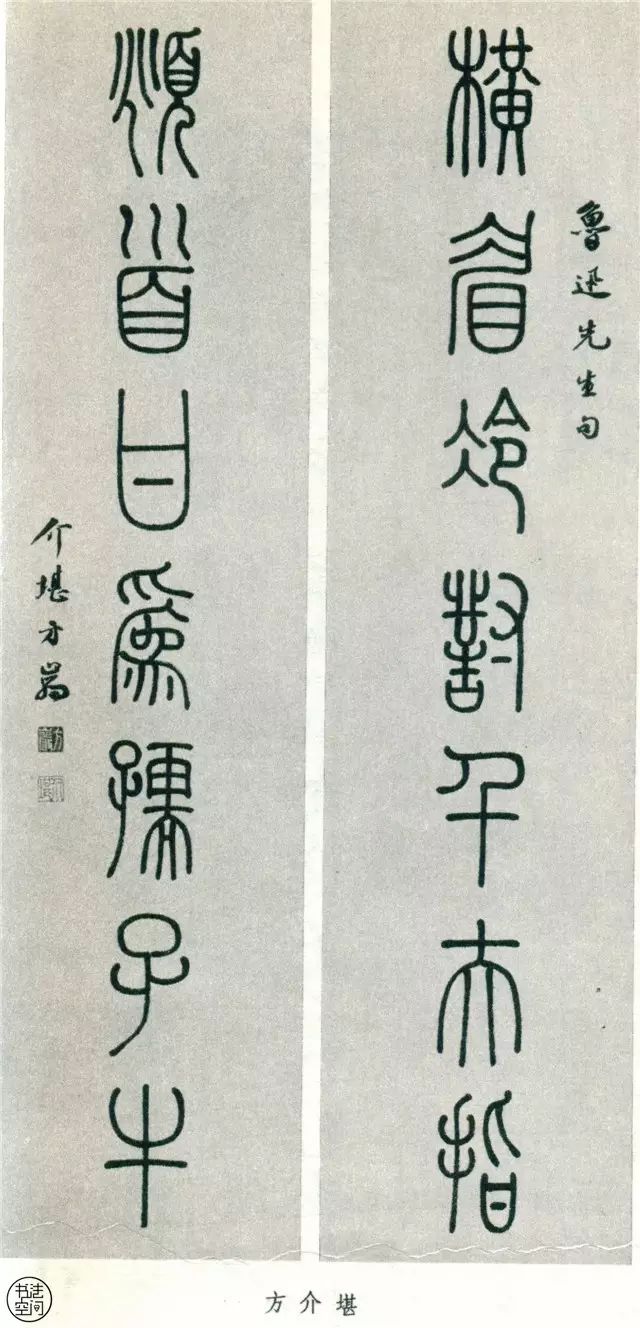 魯迅先生句
橫眉冷對千夫指
頫首甘爲孺子牛
介堪方
方介堪
书法
空间